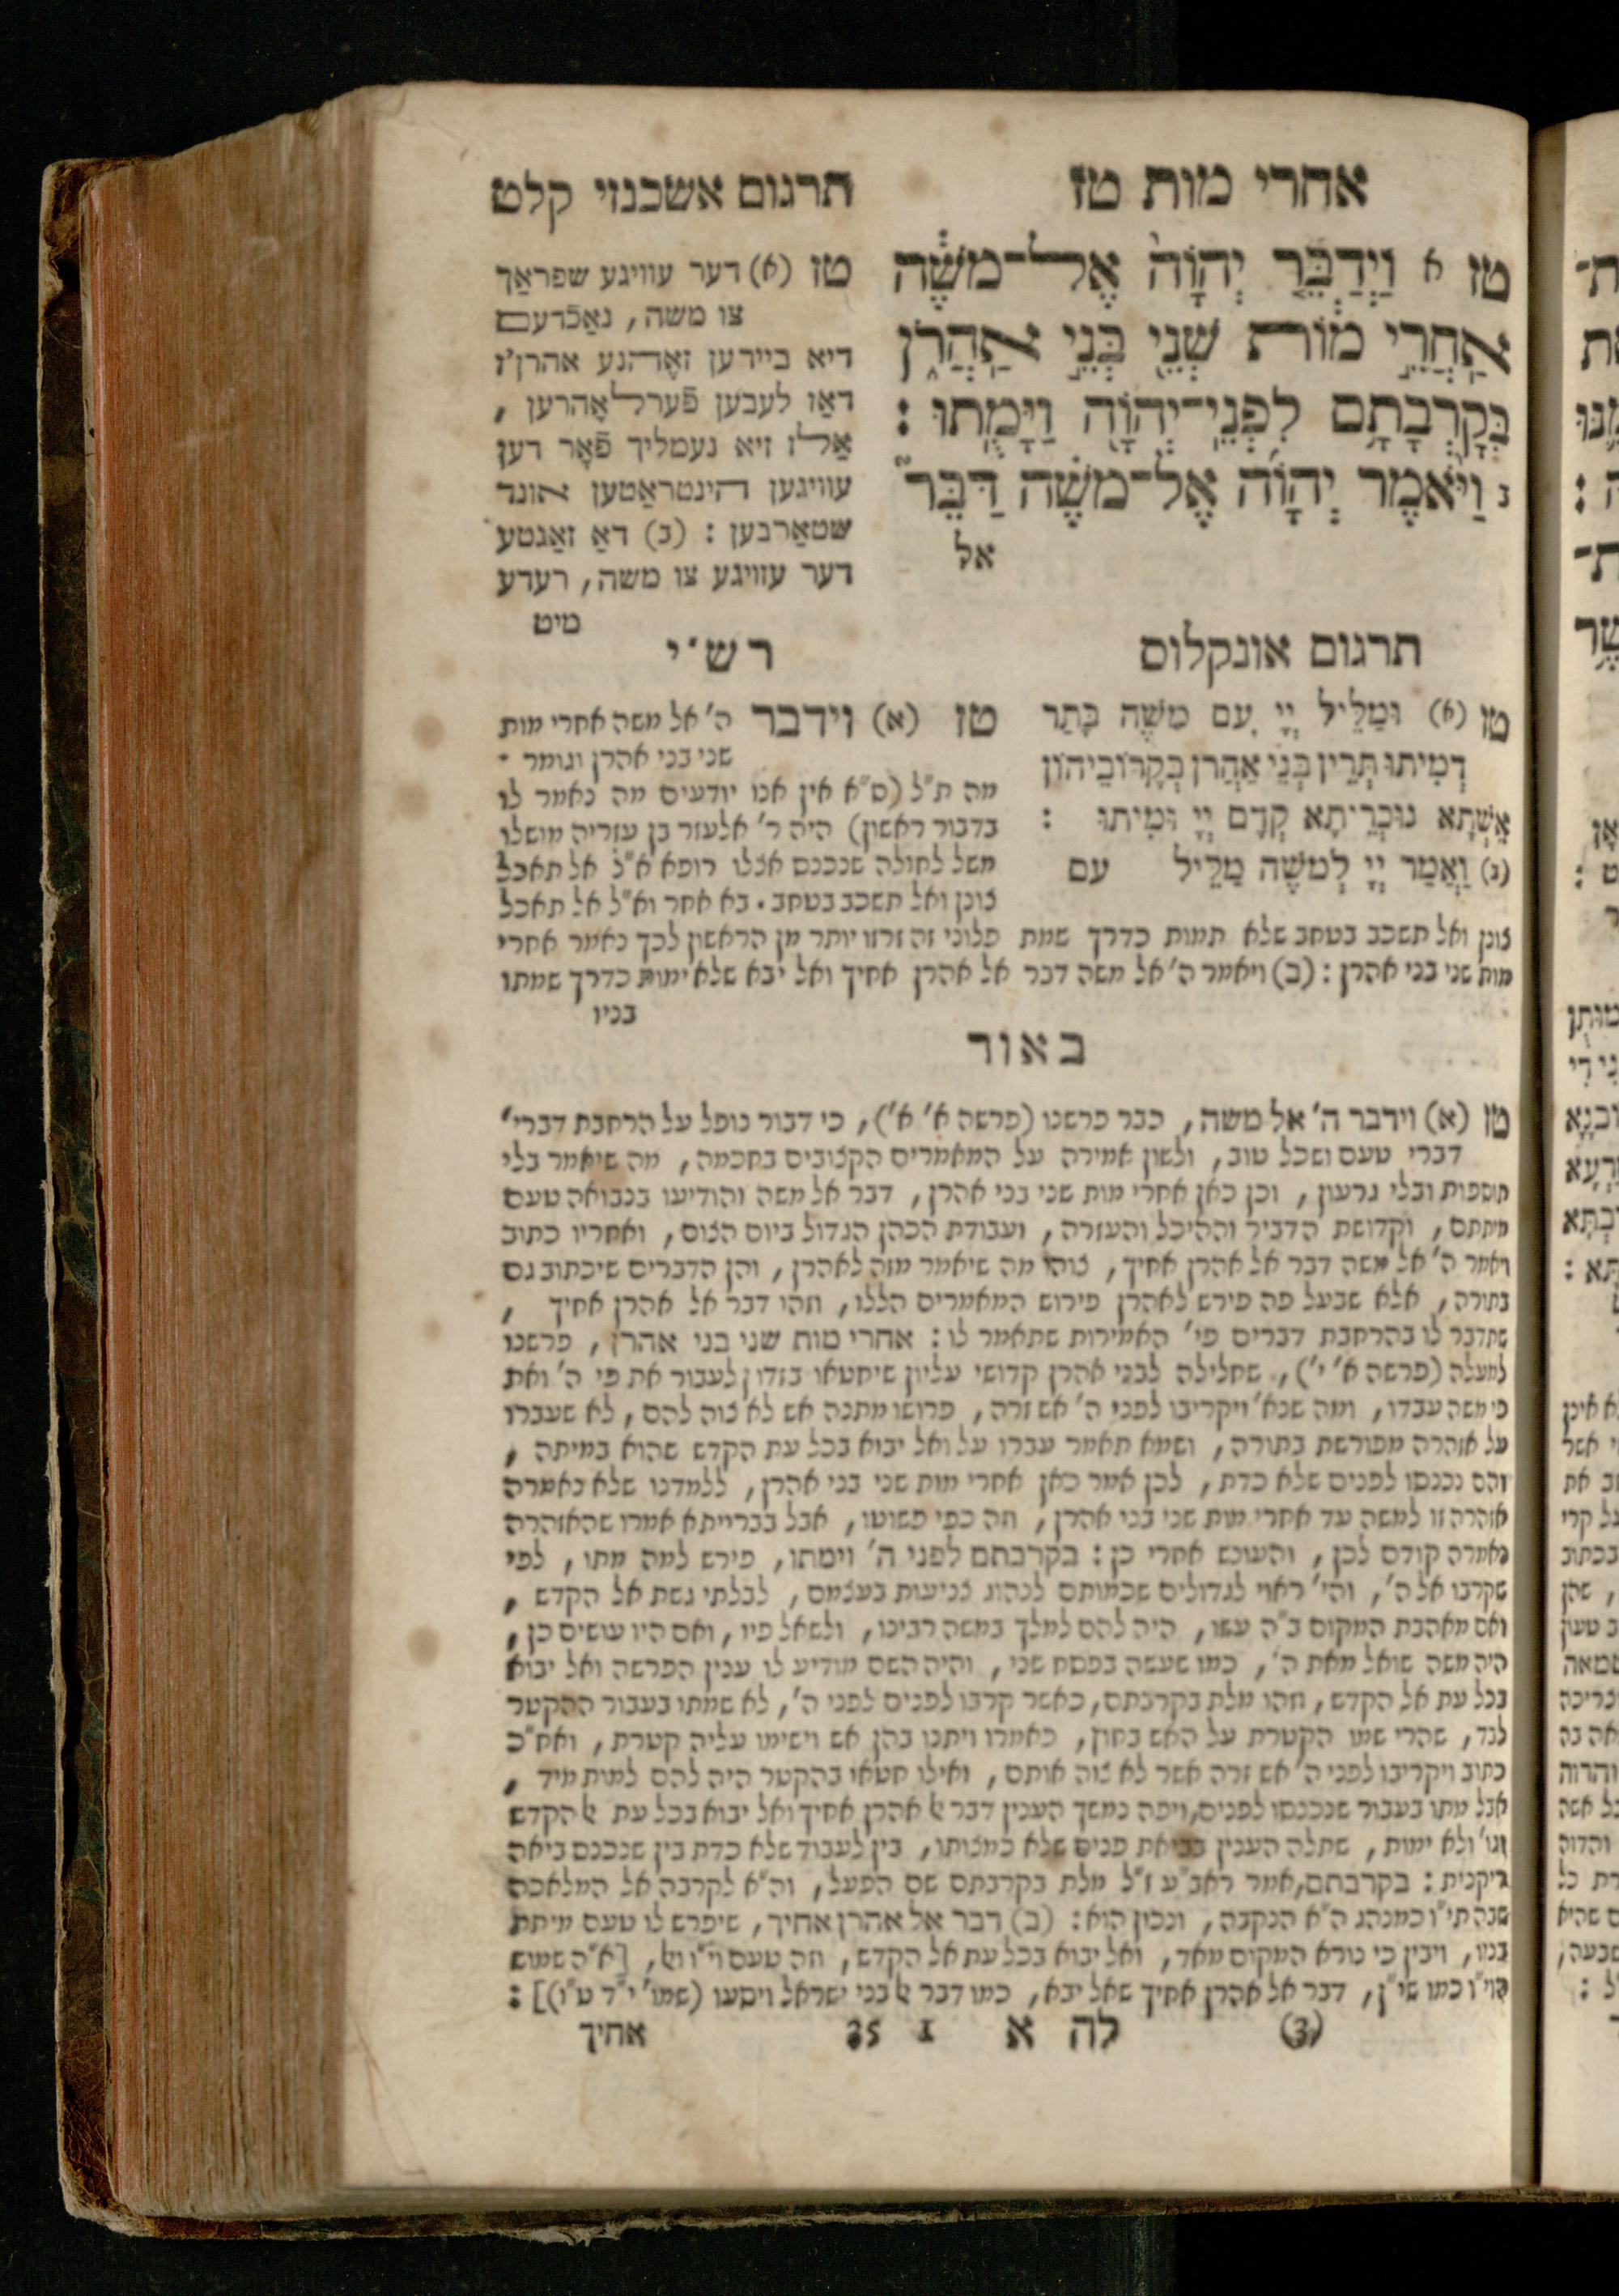 אחרי מות טז
תרגום אשכנזי קלט
טז א וַיְדַבֵּ֤ר יְהוָה֙ אֶל־מֹשֶׁ֔ה
אַחֲרֵ֣י מ֔וֹת שְׁנֵ֖י בְּנֵ֣י אַהֲרֹ֑ן
בְּקָרְבָתָ֥ם לִפְנֵי־יְהוָ֖ה וַיָּמֻֽתוּ :
ב וַיֹּ֨אמֶר יְהוָ֜ה אֶל־מֹשֶׁ֗ה דַּבֵּר֮
אל
טז (א) דער עוויגע שפראַך
צו משה, נאַכדעם
דיא ביידען זאָהנע אהרן'ז
דאַז לעבען פֿערלאָהרען ,
אַלז זיא נעמליך פֿאָר דען
עוויגען הינטראַטען אונד
שטאַרבען : (ב) דאַ זאַגטע
דער עוויגע צו משה, רעדע
מיט
תרגום אונקלוס
טז (א) וּמַלֵּיל יְיָ עִם מֹשֶׁה בָּתַר
דְמִיתוּ תְּרֵין בְּנֵי אַהֲרֹן בְּקָרוֹבֵיהוֹן
אֶשָּׁתָא נוּכְרֵיתָא קֳדָם יְיָ וּמִיתוּ :
(ב) וַאֲמַר יְיָ לְמֹשֶׁה מַלֵּיל עם
רש"י
טז (א) וידבר ה' אל משה אחרי מות
שני בני אהרן וגומר .
מה ת"ל (ס"א אין אנו יודעים מה נאמר לו
בדבור ראשון) היה ר' אלעזר בן עזריה מושלו
משל לחולה שנכנס אצלו רופא א"ל אל תאכל
צונן ואל תשכב בטחב. בא אחר וא"ל אל תאכל
צונן ואל תשכב בטחב שלא תמות כדרך שמת פלוני זה זרזו יותר מן הראשון לכך נאמר אחרי
מות שני בני אהרן : (ב) ויאמר ה' אל משה דבר אל אהרן אחיך ואל יבא שלא ימות כדרך שמתו
בניו
באור
טז (א) וידבר ה' אל משה, כבר פרשנו (פרשה א' א'), כי דבור נופל על הרחבת דברי'
דברי טעם ושכל טוב, ולשון אמירה על המאמרים הקצובים בחכמה, מה שיאמר בלי
תוספות ובלי גרעון, וכן כאן אחרי מות שני בני אהרן, דבר אל משה והודיעו בנבואה טעם
מיתתם, וקדושת הדביר וההיכל והעזרה, ועבודת הכהן הגדול ביום הצום, ואחריו כתוב
ויאמר ה' אל משה דבר אל אהרן אחיך, צוהו מה שיאמר מזה לאהרן, והן הדברים שיכתוב גם
בתורה, אלא שבעל פה פירש לאהרן פירוש המאמרים הללו, וזהו דבר אל אהרן אחיך ,
שתדבר לו בהרחבת דברים פי' האמירות שתאמר לו : אחרי מות שני בני אהרן, פרשנו
למעלה (פרשה א' י'), שחלילה לבני אהרן קדושי עליון שיחטאו בזדון לעבור את פי ה' ואת
פי משה עבדו, ומה שנא' ויקריבו לפני ה' אש זרה, פרושו מתנה אש לא צוה להם, לא שעברו
על אזהרה מפורשת בתורה, ושמא תאמר עברו על ואל יבוא בכל עת הקדש שהוא במיתה ,
והם נכנסו לפנים שלא כדת, לכן אמר כאן אחרי מות שני בני אהרן, ללמדנו שלא נאמרה
אזהרה זו למשה עד אחרי מות שני בני אהרן, וזה כפי פשוטו, אבל בברייתא אמרו שהאזהרה
נאמרה קודם לכן, והעונש אחרי כן : בקרבתם לפני ה' וימתו, פירש למה מתו, לפי
שקרבו אל ה', והי' ראוי לגדולים שכמותם לנהוג צניעות בעצמם, לבלתי גשת אל הקדש ,
ואם מאהבת המקום ב"ה עשו, היה להם למלך במשה רבינו, ולשאל פיו, ואם היו עושים כן,
היה משה שואל מאת ה', כמו שעשה בפסח שני, והיה השם מודיע לו ענין הפרשה ואל יבוא
בכל עת אל הקדש, וזהו מלת בקרבתם, כאשר קרבו לפנים לפני ה', לא שמתו בעבור ההקטר
לבד, שהרי שמו הקטרת על האש בחוץ, כאמרו ויתנו בהן אש וישימו עליה קטרת, ואח"כ
כתוב ויקריבו לפני ה' אש זרה אשר לא צוה אותם, ואילו חטאו בהקטר היה להם למות מיד ,
אבל מתו בעבור שנכנסו לפנים, ויפה נמשך הענין דבר אל אהרן אחיך ואל יבוא בכל עת אל הקדש
וגו' ולא ימות, שתלה הענין בביאת פנים שלא כמצותו, בין לעבוד שלא כדת בין שנכנס ביאה
ריקנית : בקרבתם, אמר ראב"ע ז"ל מלת בקרבתם שם הפעל, וה"א לקרבה אל המלאכה
שבה תי"ו כמנהג ה"א הנקבה, ונכון הוא : (ב) דבר אל אהרן אחיך, שיפרש לו טעם מיתת
בניו, ויבין כי נורא המקום מאד, ואל יבוא בכל עת אל הקדש, וזה טעם וי"ו ואל, [א"ה שמוש
הוי"ו כמו שי"ן, דבר אל אהרן אחיך שאל יבא, כמו דבר אל בני ישראל ויסעו (שמו' י"ד ט"ו)] :
(3) לה א 1 35 אחיך